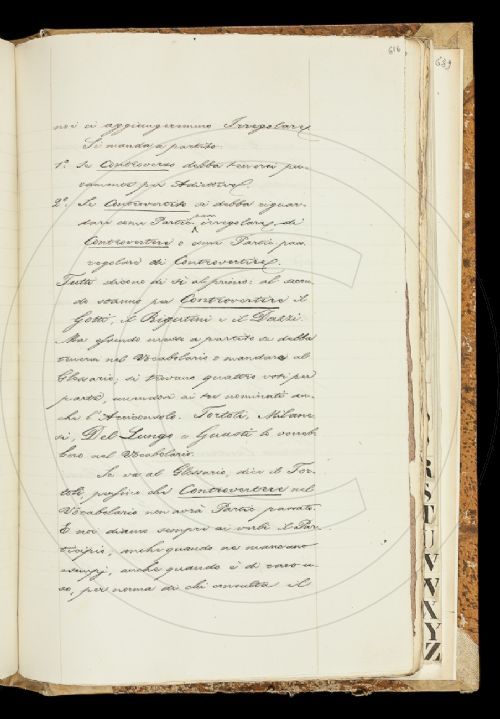 616
639
noi ci aggiungeremmo Irregolare.
Si manda a partito:
1.º Se Controverso debba tenersi pu-
ramente per Adiettivo.
2.º Se Controvertito si debba riguar-
dare come Partic. pass. irregolare, di
Controvertere o come Partic. pass.
regolare di Controvertire.
Tutti dicono di sì al primo: al secon-
do stanno per Controvertire il
Gotti, il Rigutini e il Dazzi.
Ma essendo messo a partito se debba
tenersi nel Vocabolario o mandare al
Glossario, si trovano quattro voti per
parte, unendosi ai tre nominati an-
che l'Arciconsolo. Tortoli, Milane-
si, Del Lungo e Guasti lo vorreb-
bero nel Vocabolario.
Se va al Glossario, dice il Tor-
toli, Controvertere nel
Vocabolario non avrà Partic. passato.
E noi diamo sempre ai verbi il Par-
ticipio, anche quando ne mancano
esempj, anche quando è di raro u-
so, per norma di chi consulta il
R
S
T
U
V
W
X
Y
Z